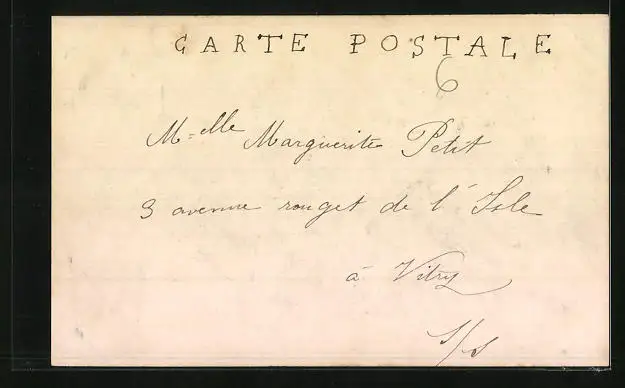 CARTE POSTALE
6
M=elle Marguerite Petit
3 avenue rouget de l'Isle
à Vitry
S/S